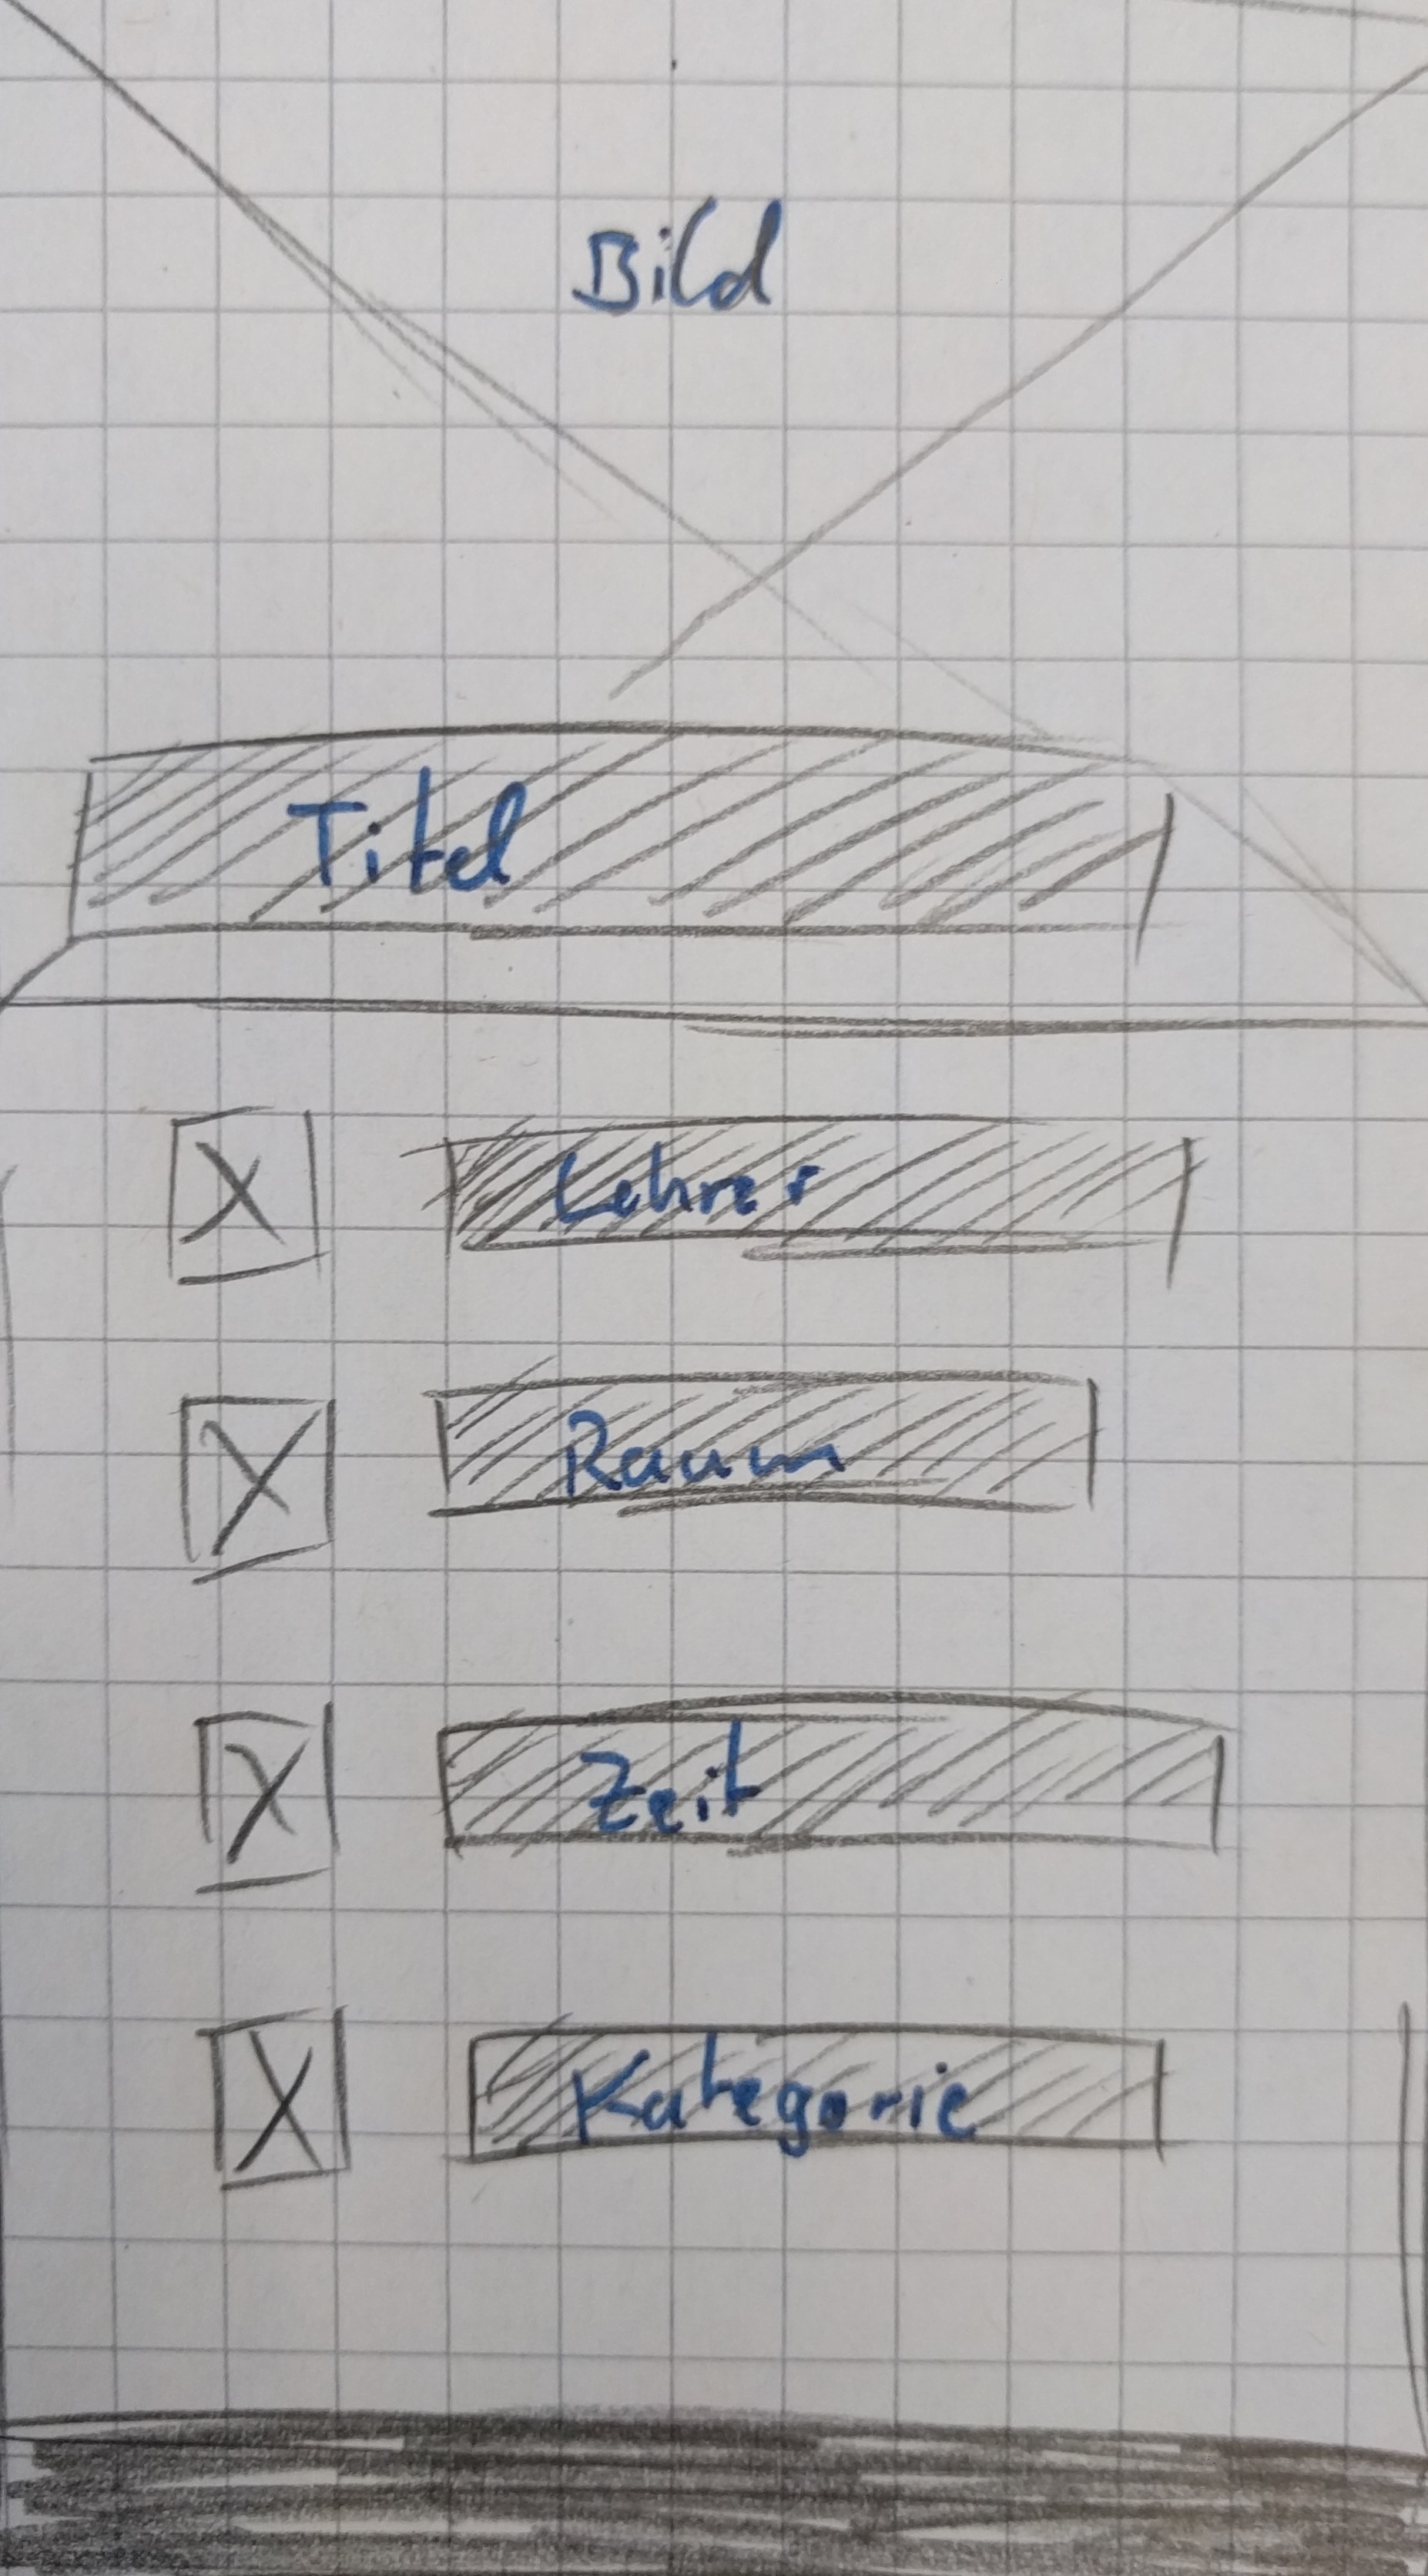 Bild
Titel
Lehrer
Raum
Zeit
Kategorie